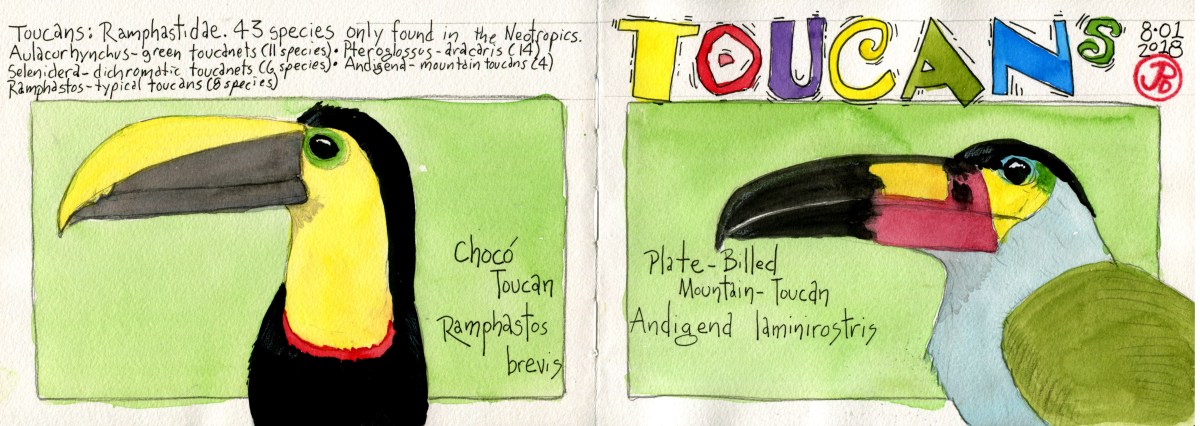 Toucans: Ramphastidae. 43 species only found in the Neotropics.
Aulacorhynchus-green toucanets (11 species)• Pteroglossus-aracaris (14)
Selenidera-dichromatic toucanets (6 species)• Andigena-mountain toucans (4)
Ramphastos-typical toucans (8 species)
TOUCANS
8·01
2018
Chocó
Toucan
Ramphastos
brevis
Plate-Billed
Mountain-Toucan
Andigend laminirostris